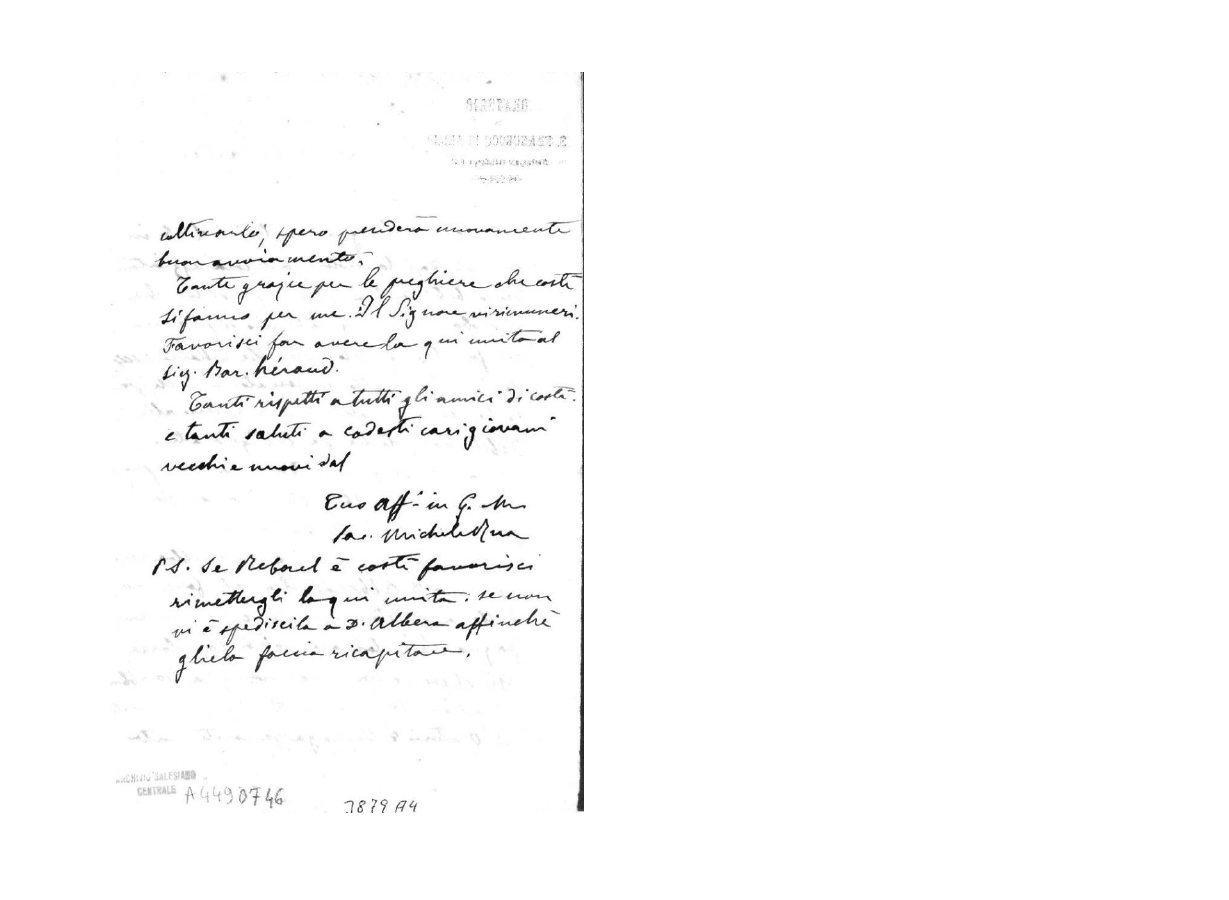 coltivarlo, spero prenderà nuovamente
buon avviamento.
Tante grazie per le preghiere che costì
si fanno per me. Il Signore vi rimuneri.
Favorisci far avere la qui unita al
Sig. Bar. Héraud.
Tanti rispetti a tutti gli amici di costì.
e tanti saluti a codesti cari giovani
vecchi e nuovi dal
Tuo aff. in G. M.
Sac. Michele Rua
P.S. Se Reboul è costì favorisci
rimettergli la qui unita: se non
vi è spediscila a D. Albera affinchè
gliela faccia ricapitare.
ARCHIVIO SALESIANO
CENTRALE A4490746
3879 A4